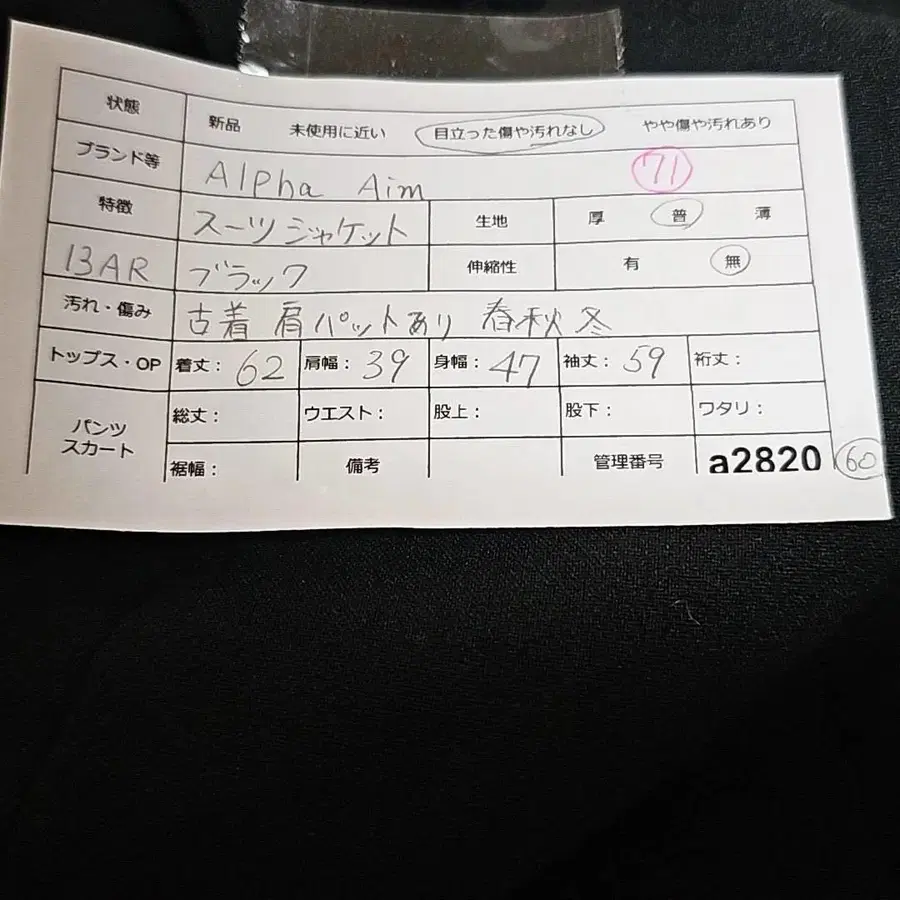 状態 新品 未使用に近い 目立った傷や汚れなし やや傷や汚れあり
ブランド等 Alpha Aim 71
特徴 スーツジャケット 生地 厚 普 薄
13AR ブラック 伸縮性 有 無
汚れ・傷み 古着 肩パットあり 春秋冬
トップス・OP 着丈：62 肩幅：39 身幅：47 袖丈：59 裄丈：
パンツ スカート 総丈： ウエスト： 股上： 股下： ワタリ：
裾幅： 備考 管理番号 a2820 60